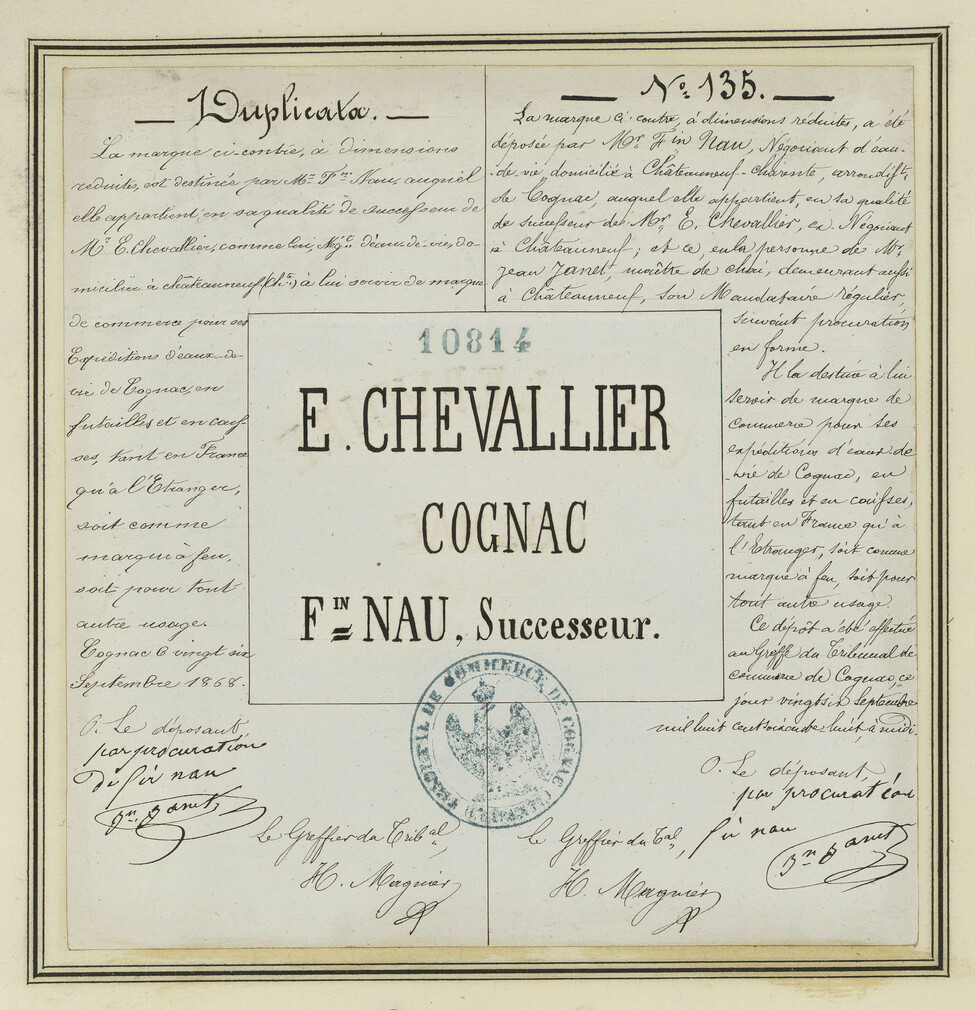 Duplicata.
La marque ci-contre, à dimensions
réduites, est destinée par Mr. Fin. Nau, auquel
elle appartient, en sa qualité de successeur de
Mr. E. Chevallier, comme lui Négt. d'eaux-de-vie, do-
micilié à châteauneuf (Chte.) à lui servir de marque
de commerce pour ses
Expéditions d'eaux-de-
vie de Cognac, en
futailles et en caisses,
tant en France
qu'à l'Etranger,
soit comme
marque à feu,
soit pour tout
autre usage.
Cognac le vingt six
Septembre 1868.
P. Le déposant,
par procuration
de fin nau
Jn. Janet
Le Greffier du Tribal,
H. Magnier
No. 135.
La marque ci-contre, à dimensions réduites, a été
déposée par Mr. Fin Nau, Négociant d'eau-
de-vie, domicilié à Châteauneuf-charente, arrondisst.
de Cognac, auquel elle appartient, en sa qualité
de successeur de Mr. E. Chevallier, ex Négociant
à Châteauneuf; et ce, en la personne de Mr.
Jean Janet, maître de chai, demeurant aussi
à Châteauneuf, son Mandataire régulier,
suivant procuration
en forme.
Il la destine à lui
servir de marque de
commerce pour ses
expéditions d'eaux-de
-vie de Cognac, en
futailles et en caisses,
tant en France qu'à
l'Etranger, soit comme
marque à feu, soit pour
tout autre usage.
Ce dépôt a été effectué
au Greffe du Tribunal de
commerce de Cognac, ce
jour vingt six Septembre
mil huit cent soixante huit, à midi.
P. Le déposant,
par procuration
fin nau
Jn. Janet
Le Greffier du Tal,
H. Magnier
10814
E. CHEVALLIER
COGNAC
FIN NAU, Successeur.
TRIBUNAL DE COMMERCE DE COGNAC